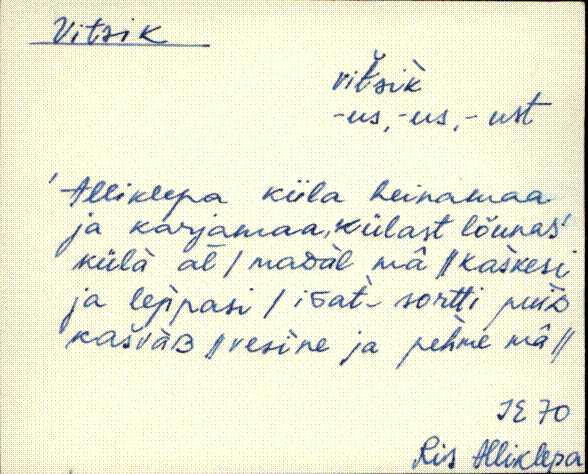 Vitsik
vitšik
-us, -us, -ust
'Alliklepa küla heinamaa
ja karjamaa, külast lõunas'
külà āl / maᴅàl mâ // kàškesi
ja leppasi / iGàt- sortti puiᴅ
kašvàʙ // vesìne ja pèhme mâ //
JE 70
Ris Alliklepa